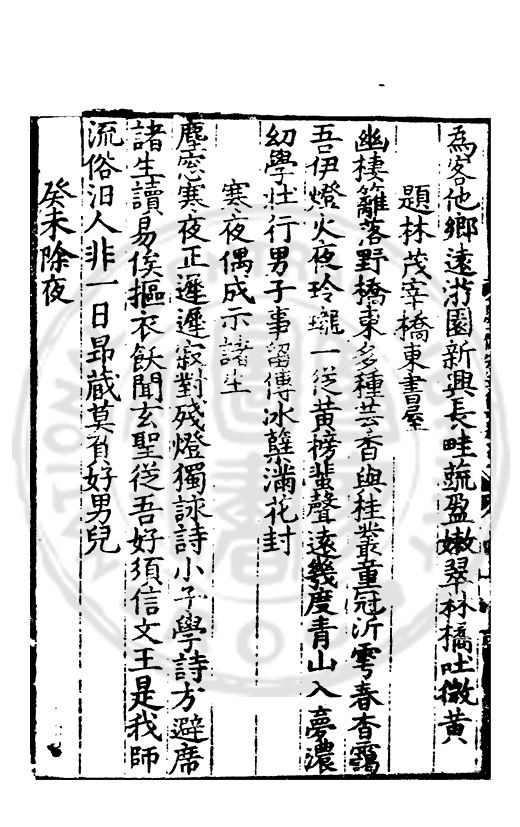 為客他鄉遠游園新興長畦蔬盈嫩翠林橘吐微黃
題林茂宰橋東書屋
幽棲籬落野橋東多種芸香與桂叢童冠沂雩春杳靄
吾伊燈火夜玲瓏一從黃榜蜚聲遠幾度青山入夢濃
幼學壯行男子事留傳冰櫱滿花封
寒夜偶成示諸生
塵窓寒夜正遲遲寂對殘燈獨詠詩小子學詩方避席
諸生讀易俟摳衣飫聞玄聖從吾好須信文王是我師
流俗汨人非一日昂藏莫負好男兒
癸未除夜